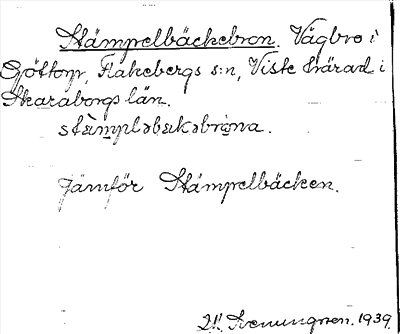 Stämpelbäckebron. Vägbro i
Götlorp, Flakebergs s:n, Viste härad i
Skaraborgs län.
stæ̀mpləbɛkəbròna.
Jämför Stämpelbäcken.
1939.